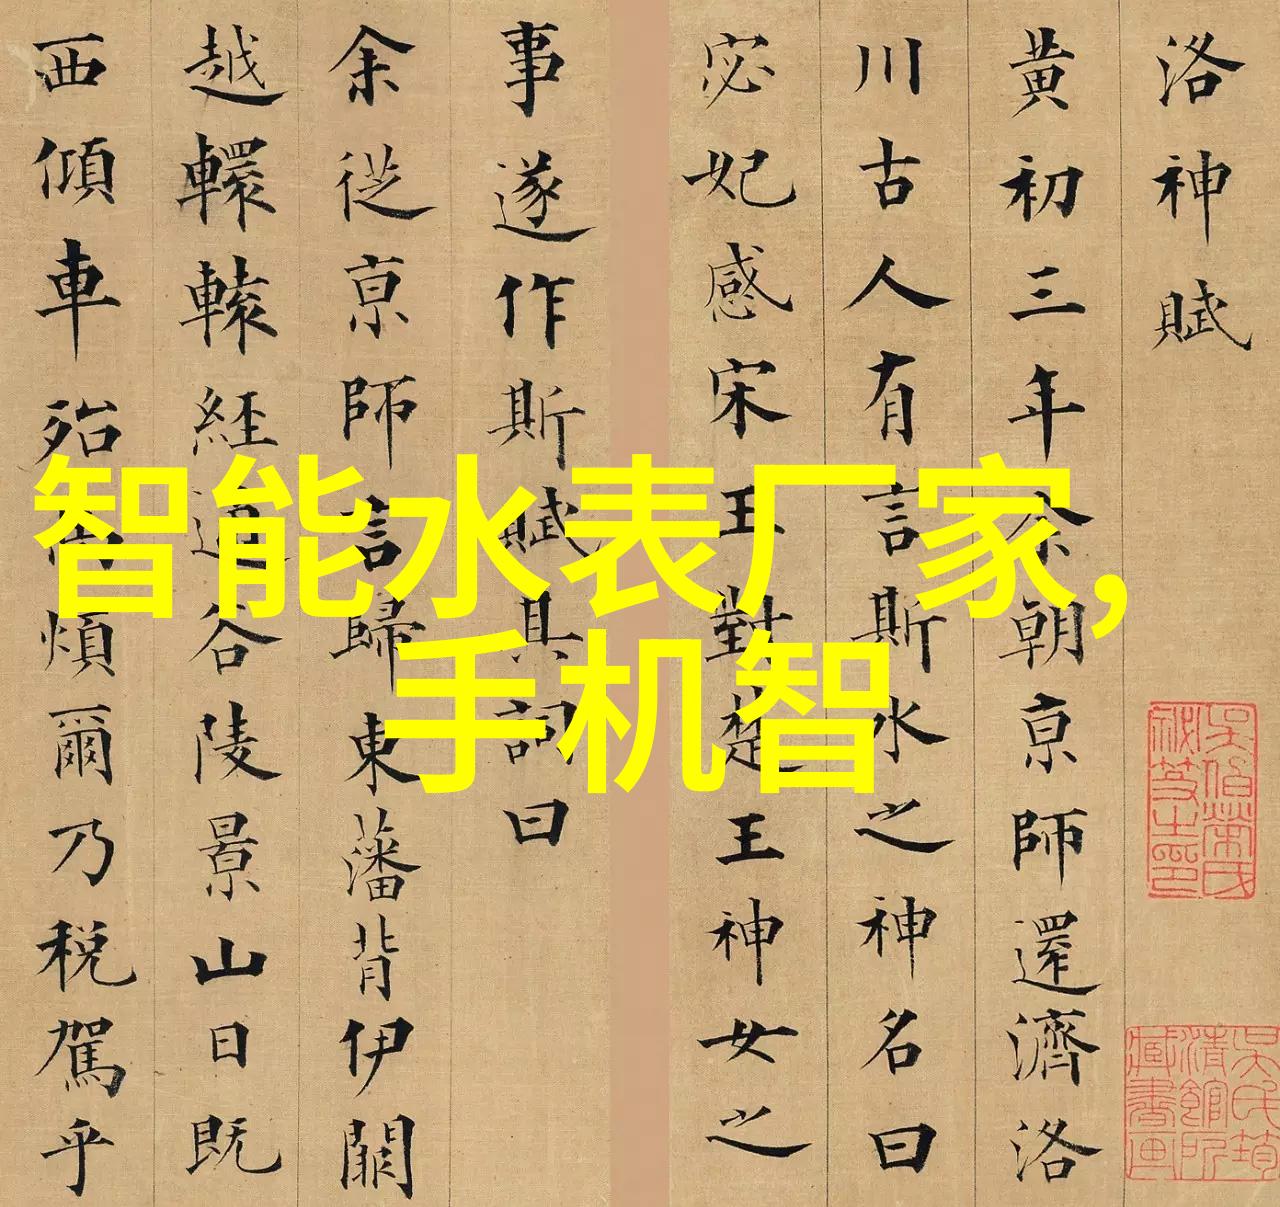 智能水表厂家,
手机智
洛神賦
黄初三年余朝亰師還濟洛
川古人有言斯水之神名曰
宓妃感宋玉對楚王神女之
事遂作斯賦其詞曰
余從亰師言歸東藩背伊闕
越轘轅経通谷陵景山日既
西傾車殆馬煩爾乃税駕乎
吳氏筠清館所藏書画